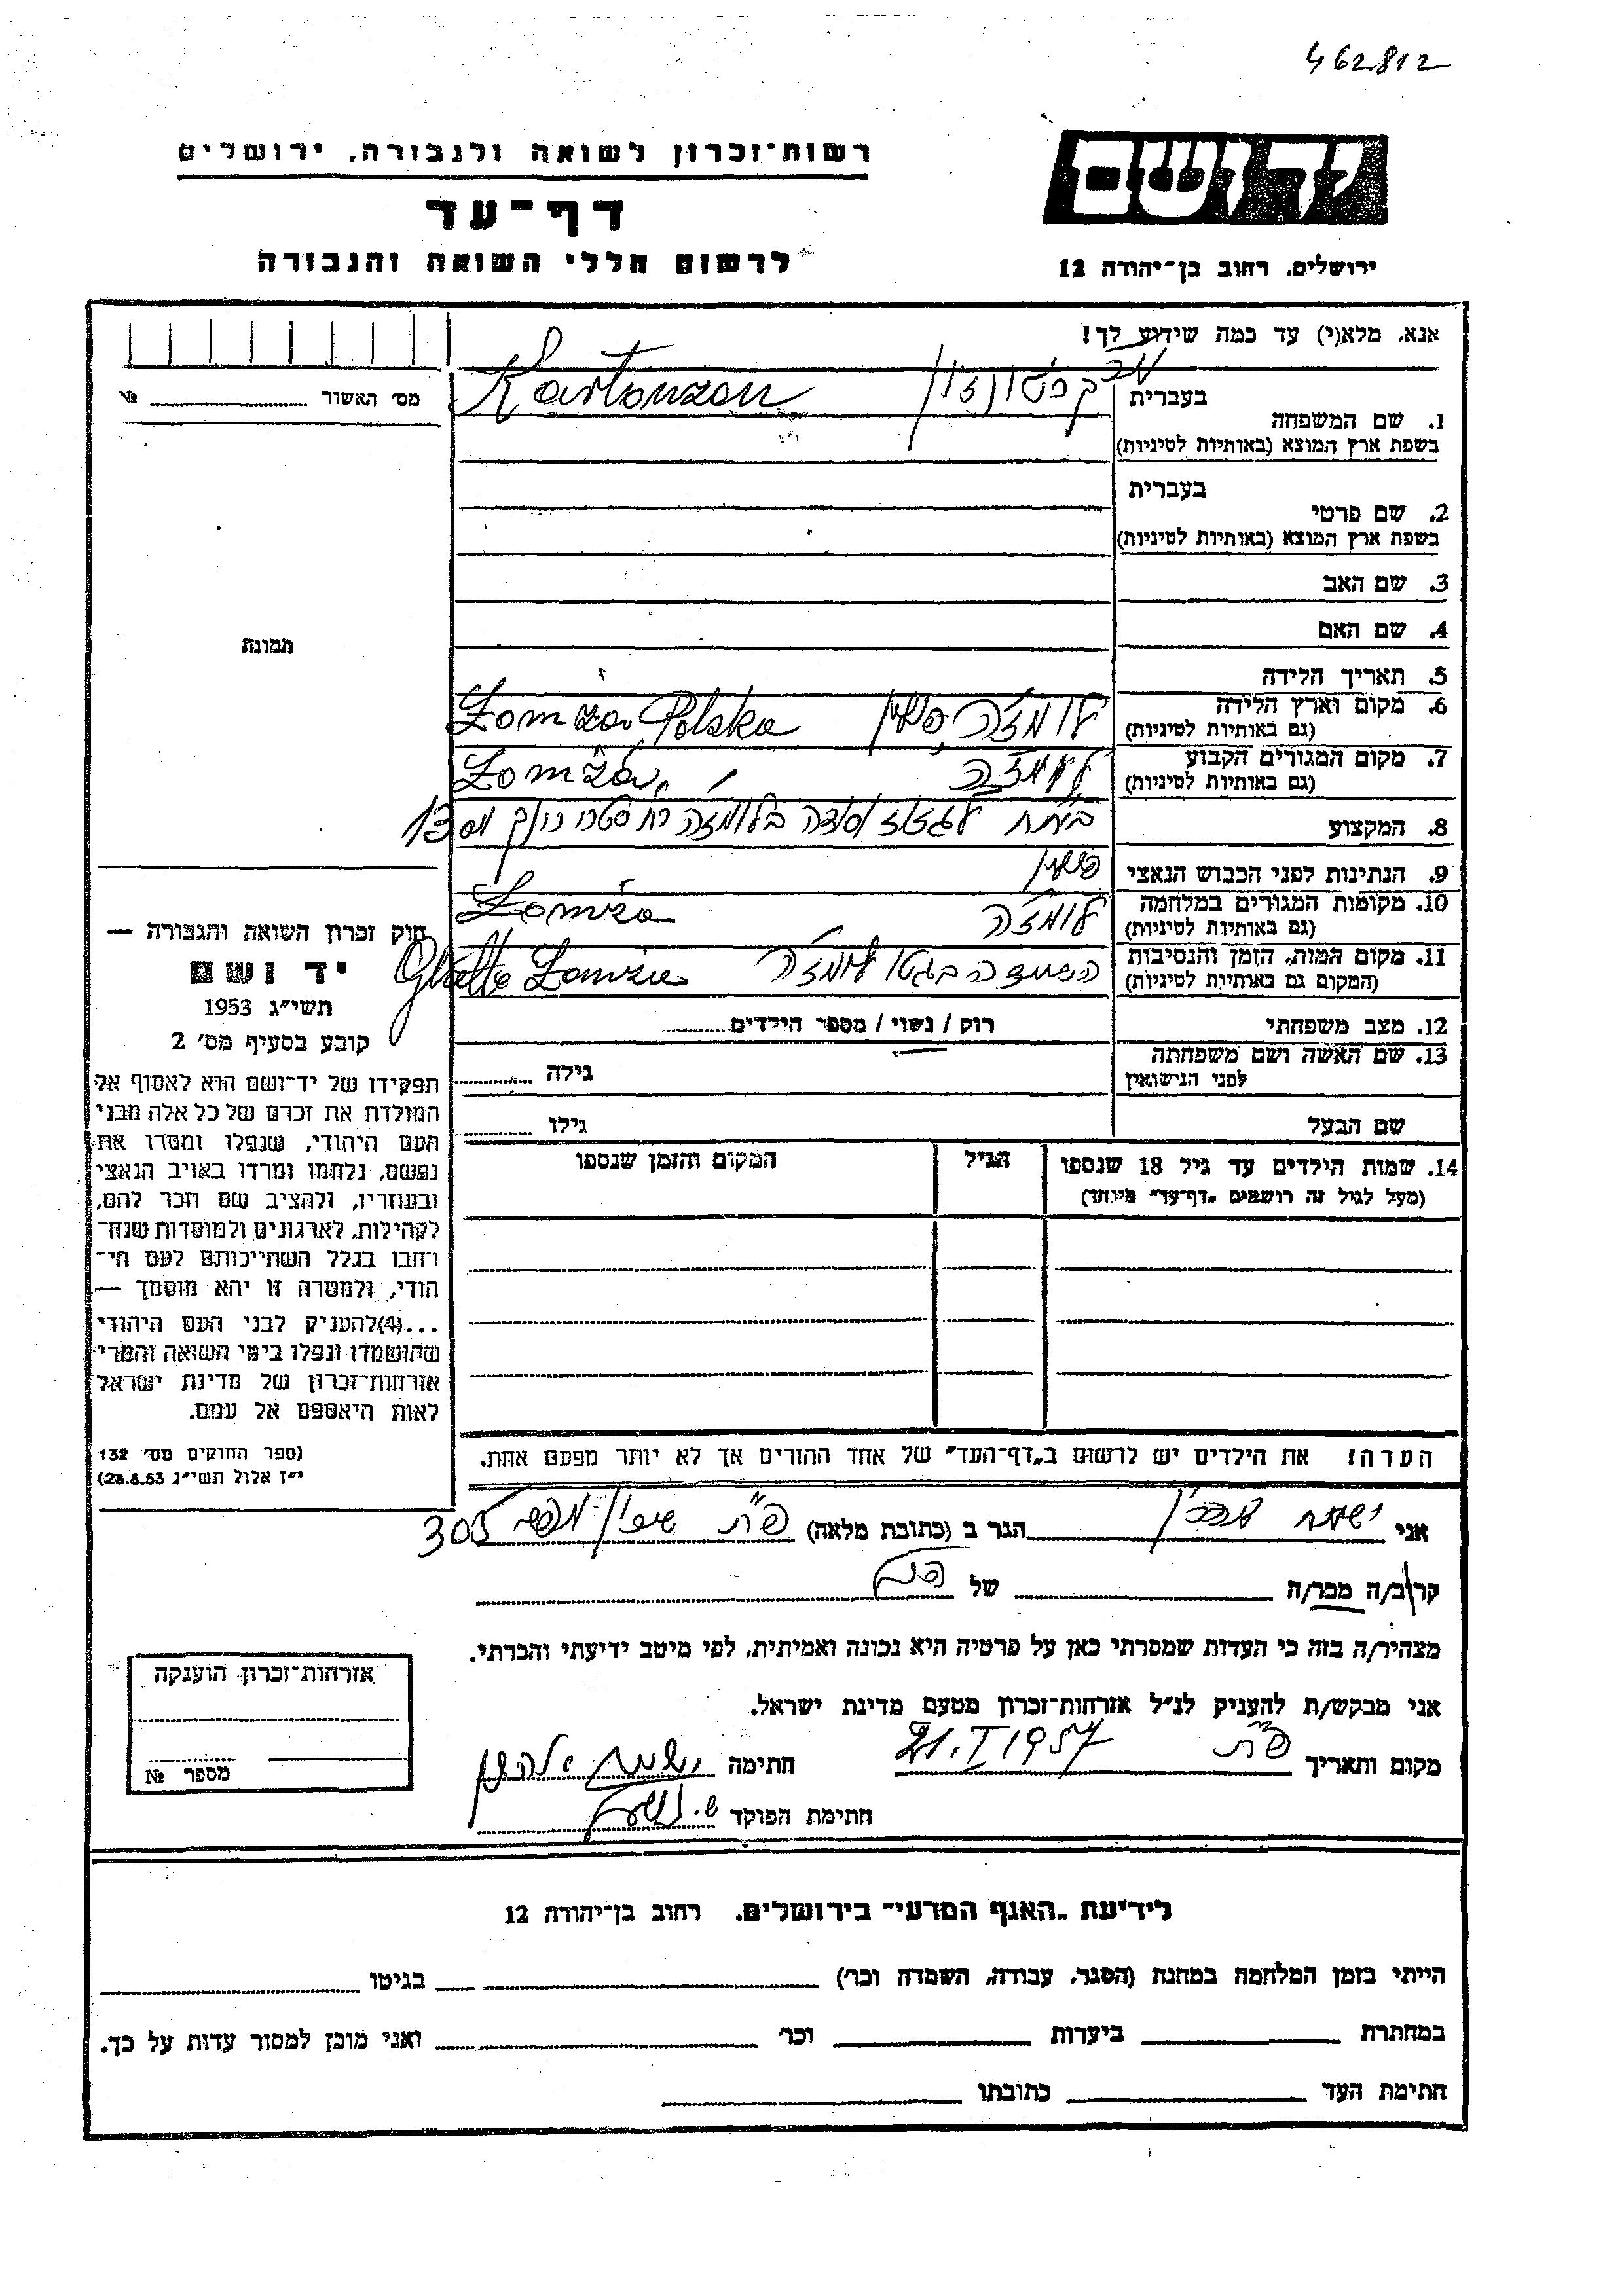 462812
רשות־זכרון לשואה ולגבורה, ירושלים
דף־עד
לרשום חללי השואה והגבורה
ידושם
ירושלים, רחוב בן־יהודה 12
אנא, מלא(י) עד כמה שידוע לך!
מס׳ האשור № 
1. שם המשפחה
בעברית
Kartonzon
בשפת ארץ המוצא (באותיות לטיניות)
בעברית
2. שם פרטי
בשפת ארץ המוצא (באותיות לטיניות)
3. שם האב
4. שם האם
תמונה
5. תאריך הלידה
6. מקום וארץ הלידה
(גם באותיות לטיניות)
לומזה, פולין Łomża Polska
7. מקום המגורים הקבוע
(גם באותיות לטיניות)
לומזה Łomża
8. המקצוע
13
9. הנתינות לפני הכבוש הנאצי
פולין
10. מקומות המגורים במלחמה
(גם באותיות לטיניות)
לומזה Łomża
11. מקום המות, הזמן והנסיבות
(המקום גם באותיות לטיניות)
הושמדה בגטו לומזה Ghetto Łomża
12. מצב משפחתי
רוק / נשוי / מספר הילדים
13. שם האשה ושם משפחתה
לפני הנישואין
גילה
שם הבעל
גילו
14. שמות הילדים עד גיל 18 שנספו
(מעל לגיל זה רושמים „דף־עד״ מיוחד)
הגיל
המקום והזמן שנספו
הערה: את הילדים יש לרשום ב„דף־העד״ של אחד ההורים אך לא יותר מפעם אחת.
חוק זכרון השואה והגבורה —
יד ושם
תשי״ג 1953
קובע בסעיף מס׳ 2
תפקידו של יד־ושם הוא לאסוף אל
המולדת את זכרם של כל אלה מבני
העם היהודי, שנפלו ומסרו את
נפשם, נלחמו ומרדו באויב הנאצי
ובעוזריו, ולהציב שם וזכר להם,
לקהילות, לארגונים ולמוסדות שנח־
רבו בגלל השתייכותם לעם הי־
הודי, ולמטרה זו יהא מוסמך —
...(4)להעניק לבני העם היהודי
שהושמדו ונפלו בימי השואה והמרי
אזרחות־זכרון של מדינת ישראל
לאות היאספם אל עמם.
(ספר החוקים מס׳ 132
י״ז אלול תשי״ג 28.8.53)
אני הגר ב (כתובת מלאה) פ״ת 305
קרוב/ה מכר/ה של
מצהיר/ה בזה כי העדות שמסרתי כאן על פרטיה היא נכונה ואמיתית, לפי מיטב ידיעתי והכרתי.
אני מבקש/ת להעניק לנ״ל אזרחות־זכרון מטעם מדינת ישראל.
מקום ותאריך פ״ת 21.I 1957 חתימה
חתימת הפוקד
אזרחות־זכרון הוענקה
מספר №
לידיעת „האגף המדעי״ בירושלים, רחוב בן־יהודה 12
הייתי בזמן המלחמה במחנה (הסגר, עבודה, השמדה וכו׳) בגיטו
במחתרת ביערות וכו׳ ואני מוכן למסור עדות על כך.
חתימת העד כתובתו